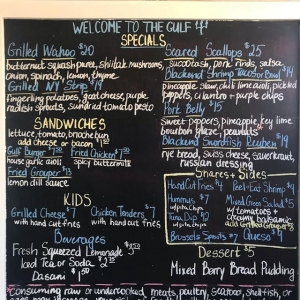 WELCOME TO THE GULF
SPECIALS
Grilled Wahoo $20
butternut squash puree, shiitak mushrooms,
onion, spinach, lemon, thyme
Grilled NY Strip
fingerling potatoes, goat cheese, purple
radish sprouts, sundried tomato pesto
Seared Scallops $25
succotash, pork rinds, salsa
Blackened Shrimp Taco or Bowl
pineapple slaw, chili lime aioli, pickled
peppers, cilantro + purple chips
Pork Belly $15
sweet peppers, pineapple, key lime
bourbon glaze, peanuts
Blackened Swordfish Reuben
rye bread, swiss cheese, sauerkraut,
russian dressing
SANDWICHES
lettuce, tomato, brioche bun
add cheese or bacon
Gulf Burger Fried Chicken
house garlic aioli spicy buttermilk
Fried Grouper
lemon dill sauce
KIDS
Grilled Cheese $7 Chicken Tenders $7
with hand cut fries with hand cut fries
Beverages
Fresh Squeezed Lemonade
Iced Tea or Soda
Dasani
Shares + Sides
Hand Cut Fries $4
Hummus
w/pita chips
Tuna Dip
w/pita chips
Brussels Sprouts $7
Peel + Eat Shrimp
Mixed Green Salad
w/tomatoes +
creamy
add Grilled Grouper
Queso
Dessert $5
Mixed Berry Bread Pudding
Consuming raw or undercooked meats, poultry, seafood, shellfish, or